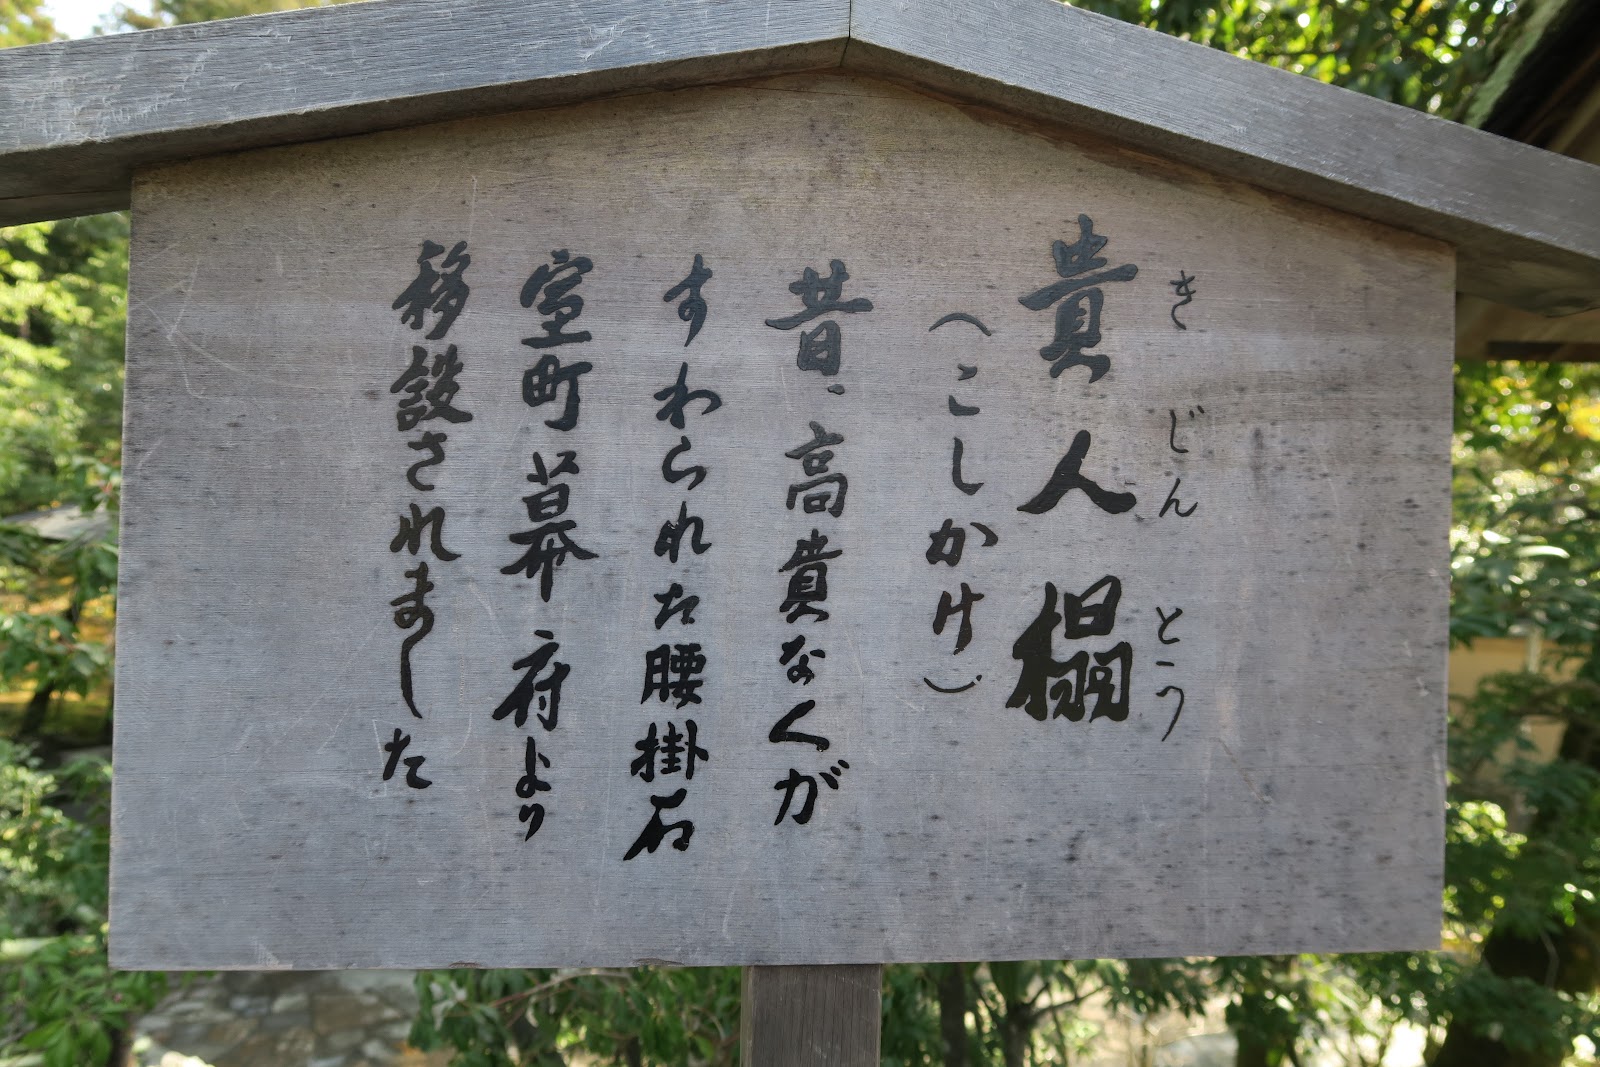 きじんとう
貴人榻
（こしかけ）
昔、高貴なくが
すわられた腰掛石
室町幕府より
移設されました